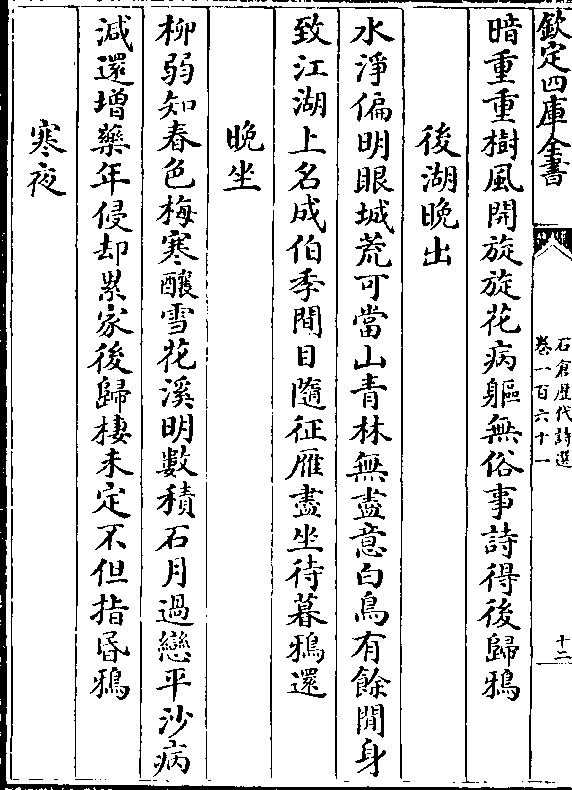 欽定四庫全書
石倉歷代詩選
卷一百六十一
十二
暗重重樹風開旋旋花病軀無俗事詩得後歸鴉
後湖晚出
水淨偏明眼城荒可當山青林無盡意白鳥有餘閒身
致江湖上名成伯季間目隨征雁盡坐待暮鴉還
晚坐
柳弱知春色梅寒釀雪花溪明數積石月過戀平沙病
減還增藥年侵却累家後歸棲未定不但指昬鴉
寒夜